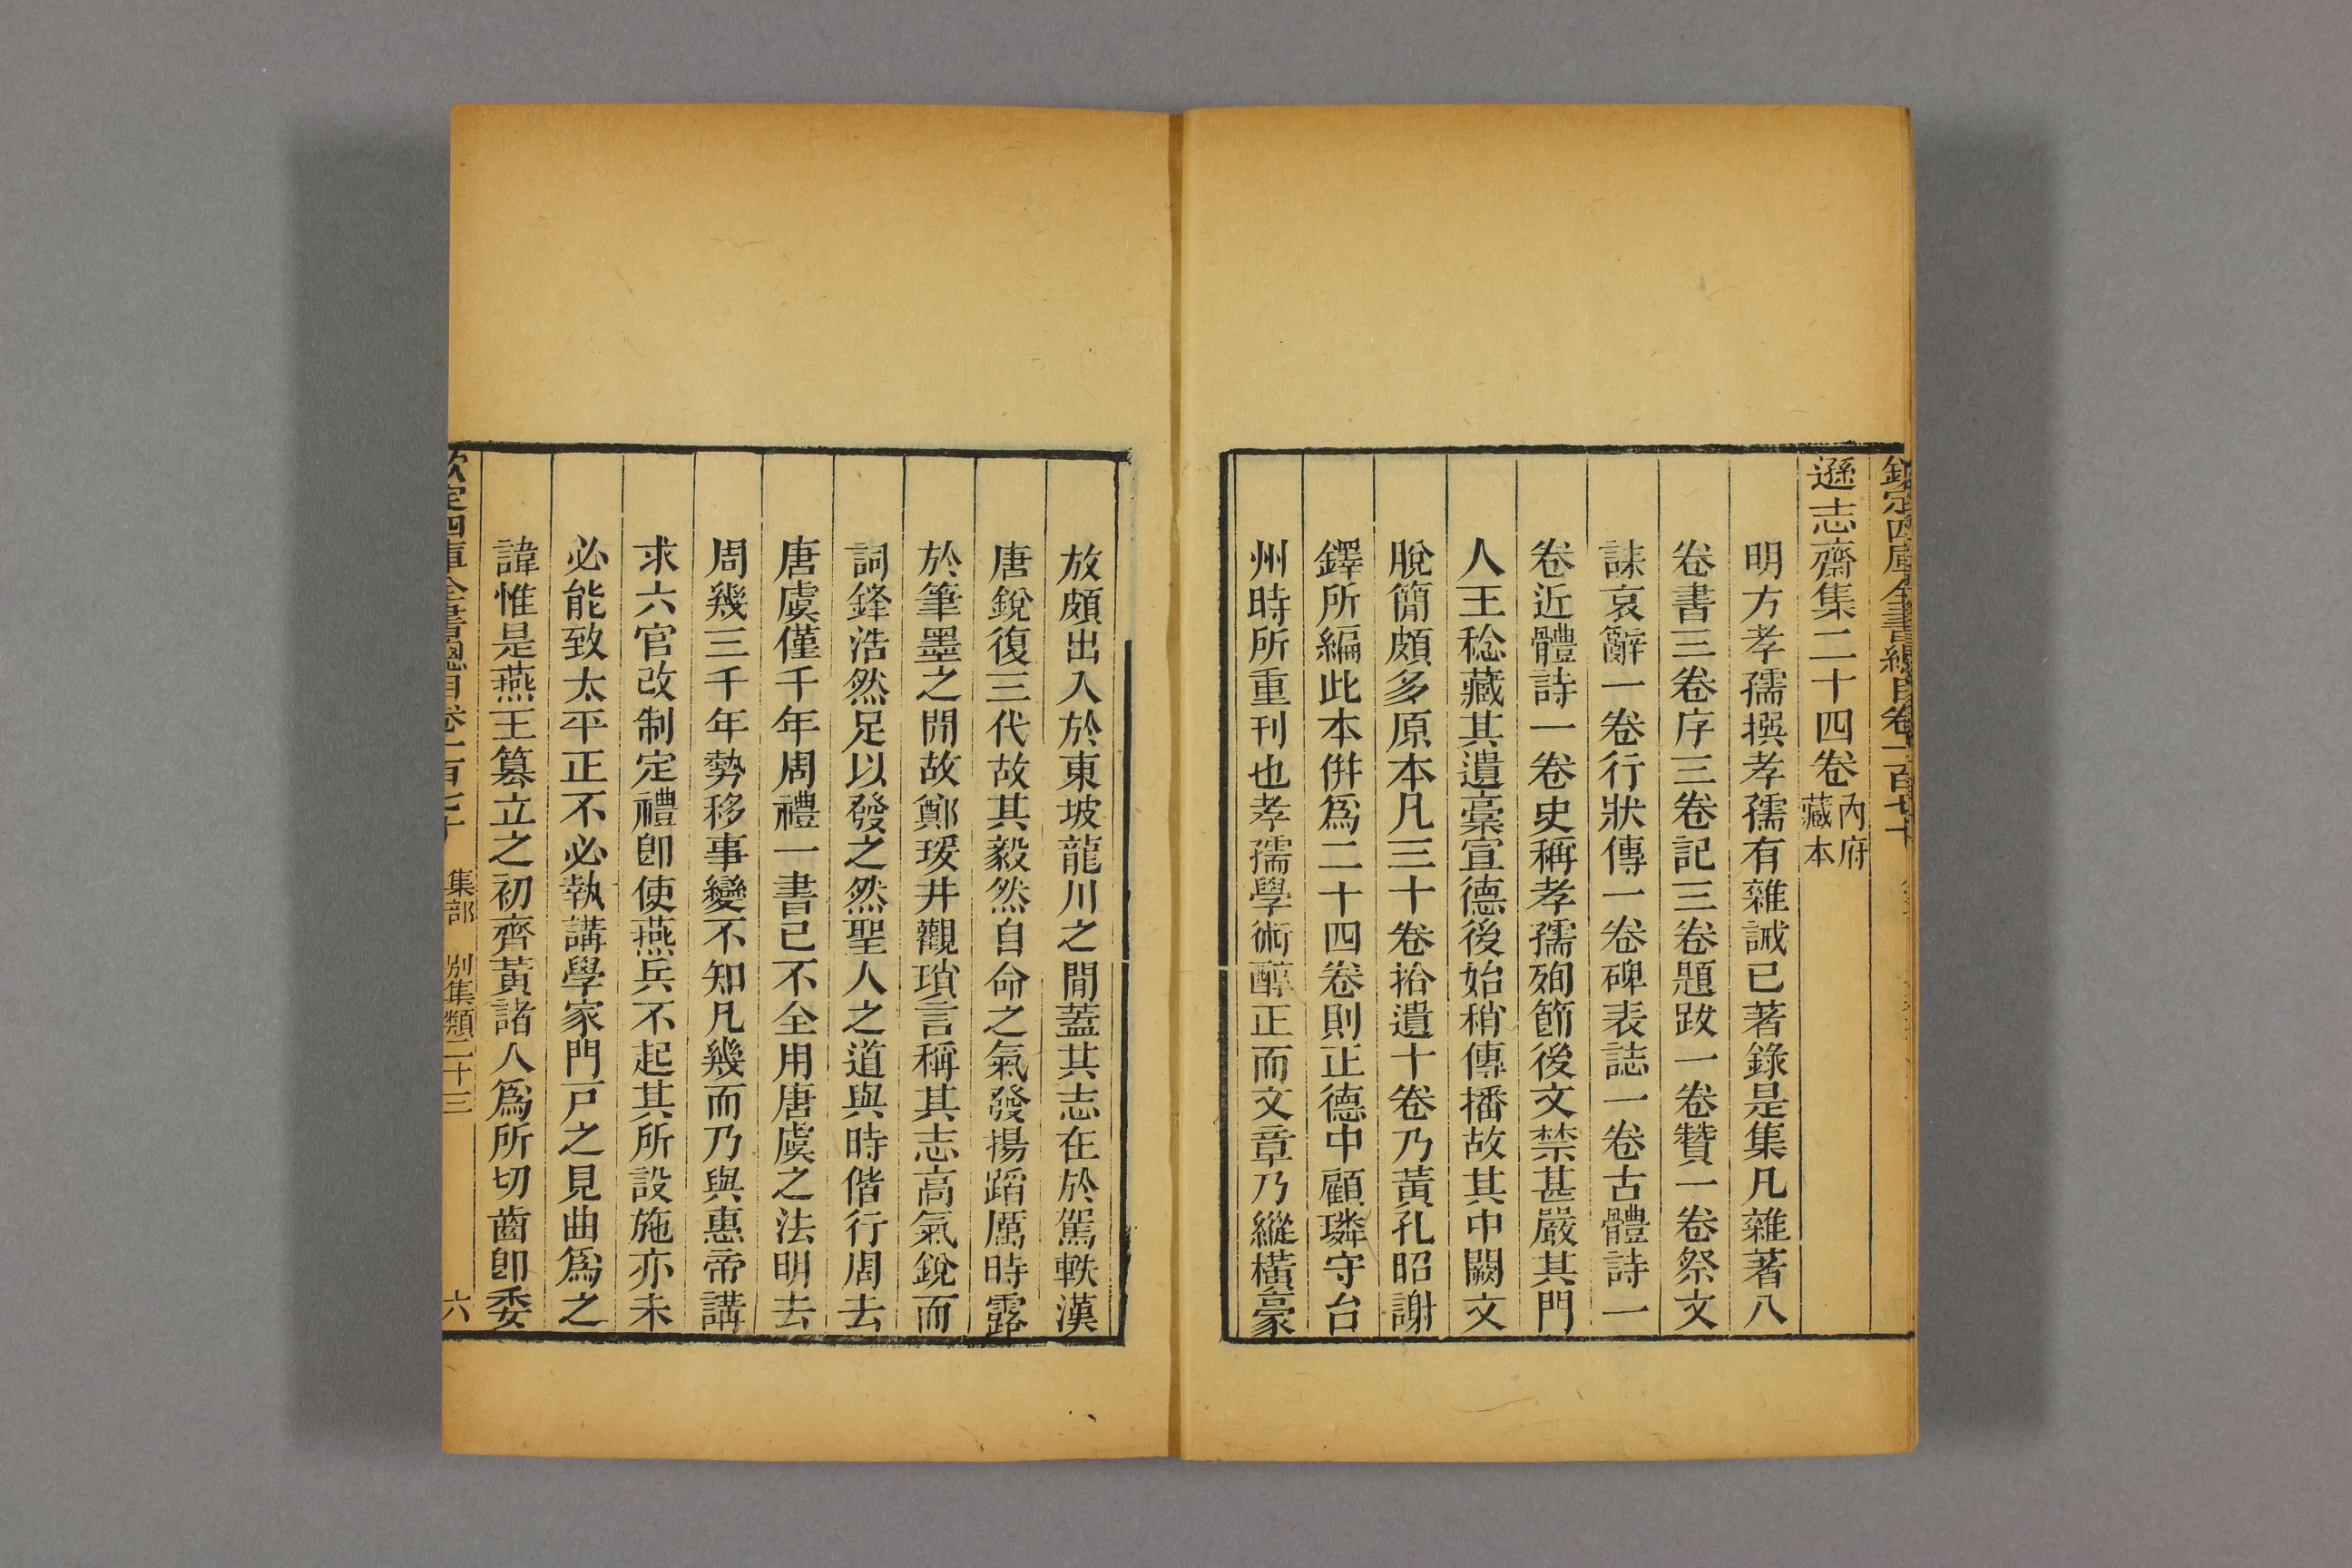 欽定四庫全書總目卷一百七十
遜志齋集二十四卷內府藏本
明方孝孺撰孝孺有雜誡已著錄是集凡雜著八
卷書三卷序三卷記三卷題跋一卷贊一卷祭文
誄哀辭一卷行狀傳一卷碑表誌一卷古體詩一
卷近體詩一卷史稱孝孺殉節後文禁甚嚴其門
人王稔藏其遺稾宣德後始稍傳播故其中闕文
脫簡頗多原本凡三十卷拾遺十卷乃黃孔昭謝
鐸所編此本併爲二十四卷則正德中顧璘守台
州時所重刊也孝孺學術醇正而文章乃縱橫豪
放頗出入於東坡龍川之閒蓋其志在於駕軼漢
唐銳復三代故其毅然自命之氣發揚蹈厲時露
於筆墨之閒故鄭瑗井觀瑣言稱其志高氣銳而
詞鋒浩然足以發之然聖人之道與時偕行周去
唐虞僅千年周禮一書已不全用唐虞之法明去
周幾三千年勢移事變不知凡幾而乃與惠帝講
求六官改制定禮卽使燕兵不起其所設施亦未
必能致太平正不必執講學家門戸之見曲爲之
諱惟是燕王篡立之初齊黃諸人爲所切齒卽委
欽定四庫全書總目卷一百七十 集部 別集類二十三 六